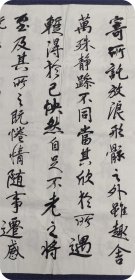 寄所託放浪形骸之外雖趣舍
萬殊靜躁不同當其欣於所遇
蹔得於己快然自足不老之將
至及其所之既惓情隨事遷感